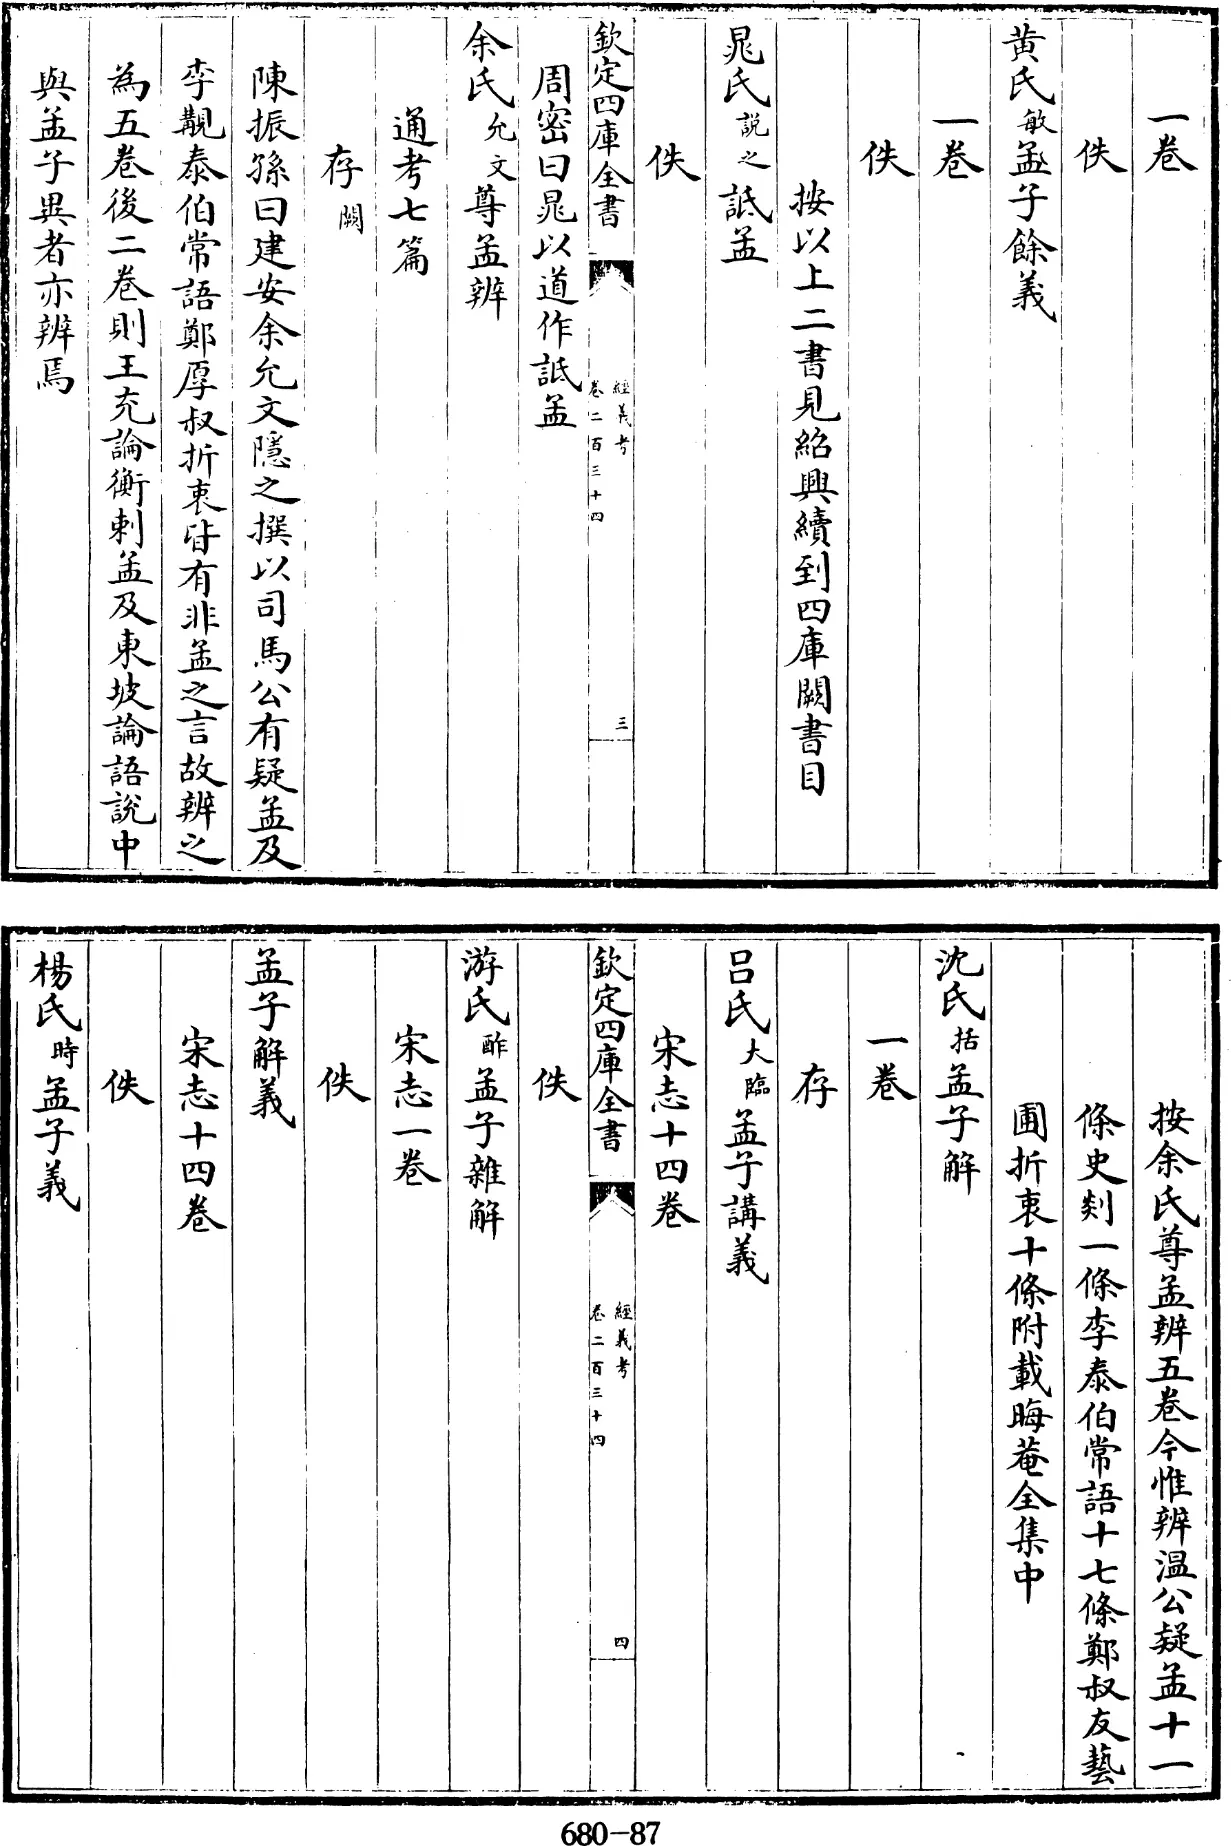 一卷
佚
黄氏敏孟子餘義
一卷
佚
按以上二書見紹興續到四庫闕書目
晁氏說之詆孟
佚
欽定四庫全書
經義考
卷二百三十四
三
周密曰晁以道作詆孟
余氏允文尊孟辨
通考七篇
存闕
陳振孫曰建安余允文隱之撰以司馬公有疑孟及
李覯泰伯常語鄭厚叔折衷皆有非孟之言故辨之
為五卷後二卷則王充論衡刺孟及東坡論語説中
與孟子異者亦辨焉
按余氏尊孟辨五卷今惟辨温公疑孟十一
條史剡一條李泰伯常語十七條鄭叔友藝
圃折衷十條附載晦菴全集中
沈氏括孟子解
一卷
存
吕氏大臨孟子講義
宋志十四卷
欽定四庫全書
經義考
卷二百三十四
四
佚
游氏酢孟子雜解
宋志一卷
佚
孟子解義
宋志十四卷
佚
楊氏時孟子義
680-87